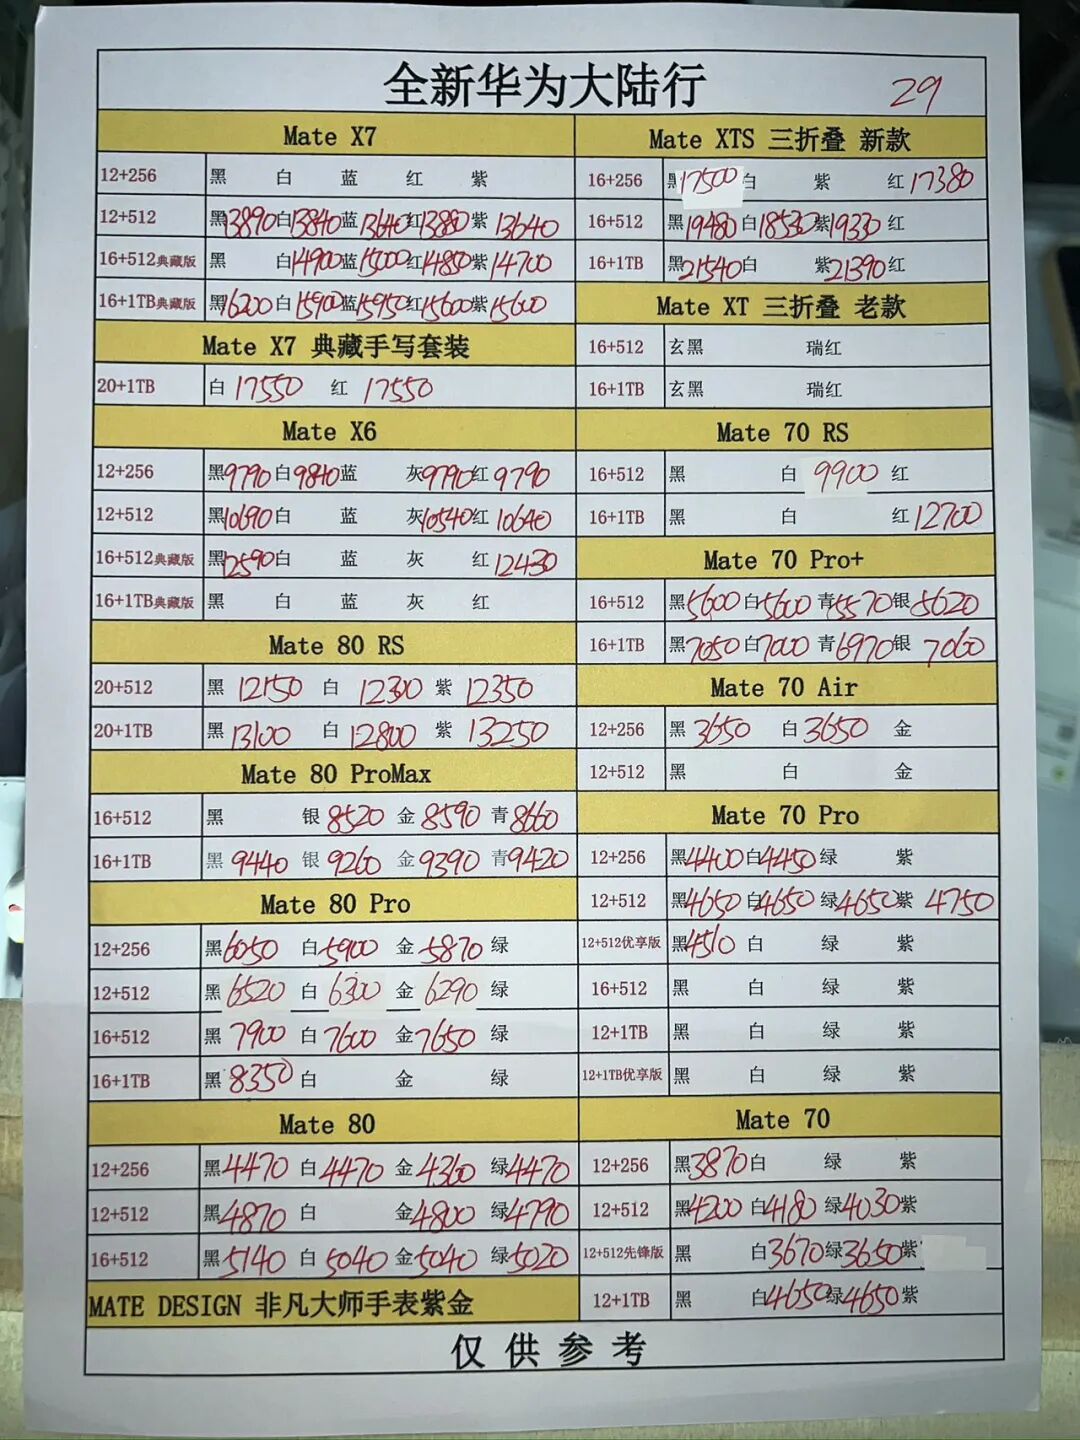 全新华为大陆行 29
Mate X7
12+256 黑 白 蓝 红 紫
12+512 黑13890 白13840 蓝13640 红13880 紫13640
16+512典藏版 黑 白14900 蓝15000 红14850 紫14700
16+1TB典藏版 黑16200 白15900 蓝15950 红15600 紫15600
Mate X7 典藏手写套装
20+1TB 白17550 红17550
Mate X6
12+256 黑9790 白9840 蓝 灰9790 红9790
12+512 黑10690 白 蓝 灰10540 红10640
16+512典藏版 黑12590 白 蓝 灰 红12430
16+1TB典藏版 黑 白 蓝 灰 红
Mate 80 RS
20+512 黑12150 白12300 紫12350
20+1TB 黑13100 白12800 紫13250
Mate 80 ProMax
16+512 黑 银8520 金8590 青8660
16+1TB 黑9440 银9260 金9390 青9420
Mate 80 Pro
12+256 黑6050 白5900 金5870 绿
12+512 黑6520 白6300 金6290 绿
16+512 黑7900 白7600 金7650 绿
16+1TB 黑8350 白 金 绿
Mate 80
12+256 黑4470 白4470 金4360 绿4470
12+512 黑4870 白 金4800 绿4790
16+512 黑5140 白5040 金5040 绿5020
MATE DESIGN 非凡大师手表紫金
Mate XTS 三折叠 新款
16+256 黑17500 白 紫 红17380
16+512 黑19480 白18530 紫19330 红
16+1TB 黑21540 白 紫21390 红
Mate XT 三折叠 老款
16+512 玄黑 瑞红
16+1TB 玄黑 瑞红
Mate 70 RS
16+512 黑 白9900 红
16+1TB 黑 白 红12700
Mate 70 Pro+
16+512 黑5600 白5600 青5570 银5620
16+1TB 黑7050 白7000 青6970 银7060
Mate 70 Air
12+256 黑3650 白3650 金
12+512 黑 白 金
Mate 70 Pro
12+256 黑4400 白4450 绿 紫
12+512 黑4650 白4650 绿4650 紫4750
12+512优享版 黑4510 白 绿 紫
16+512 黑 白 绿 紫
12+1TB 黑 白 绿 紫
12+1TB优享版 黑 白 绿 紫
Mate 70
12+256 黑3870 白 绿 紫
12+512 黑4200 白4180 绿4030 紫
12+512先锋版 黑 白3670 绿3650 紫
12+1TB 黑 白4650 绿4650 紫
仅供参考